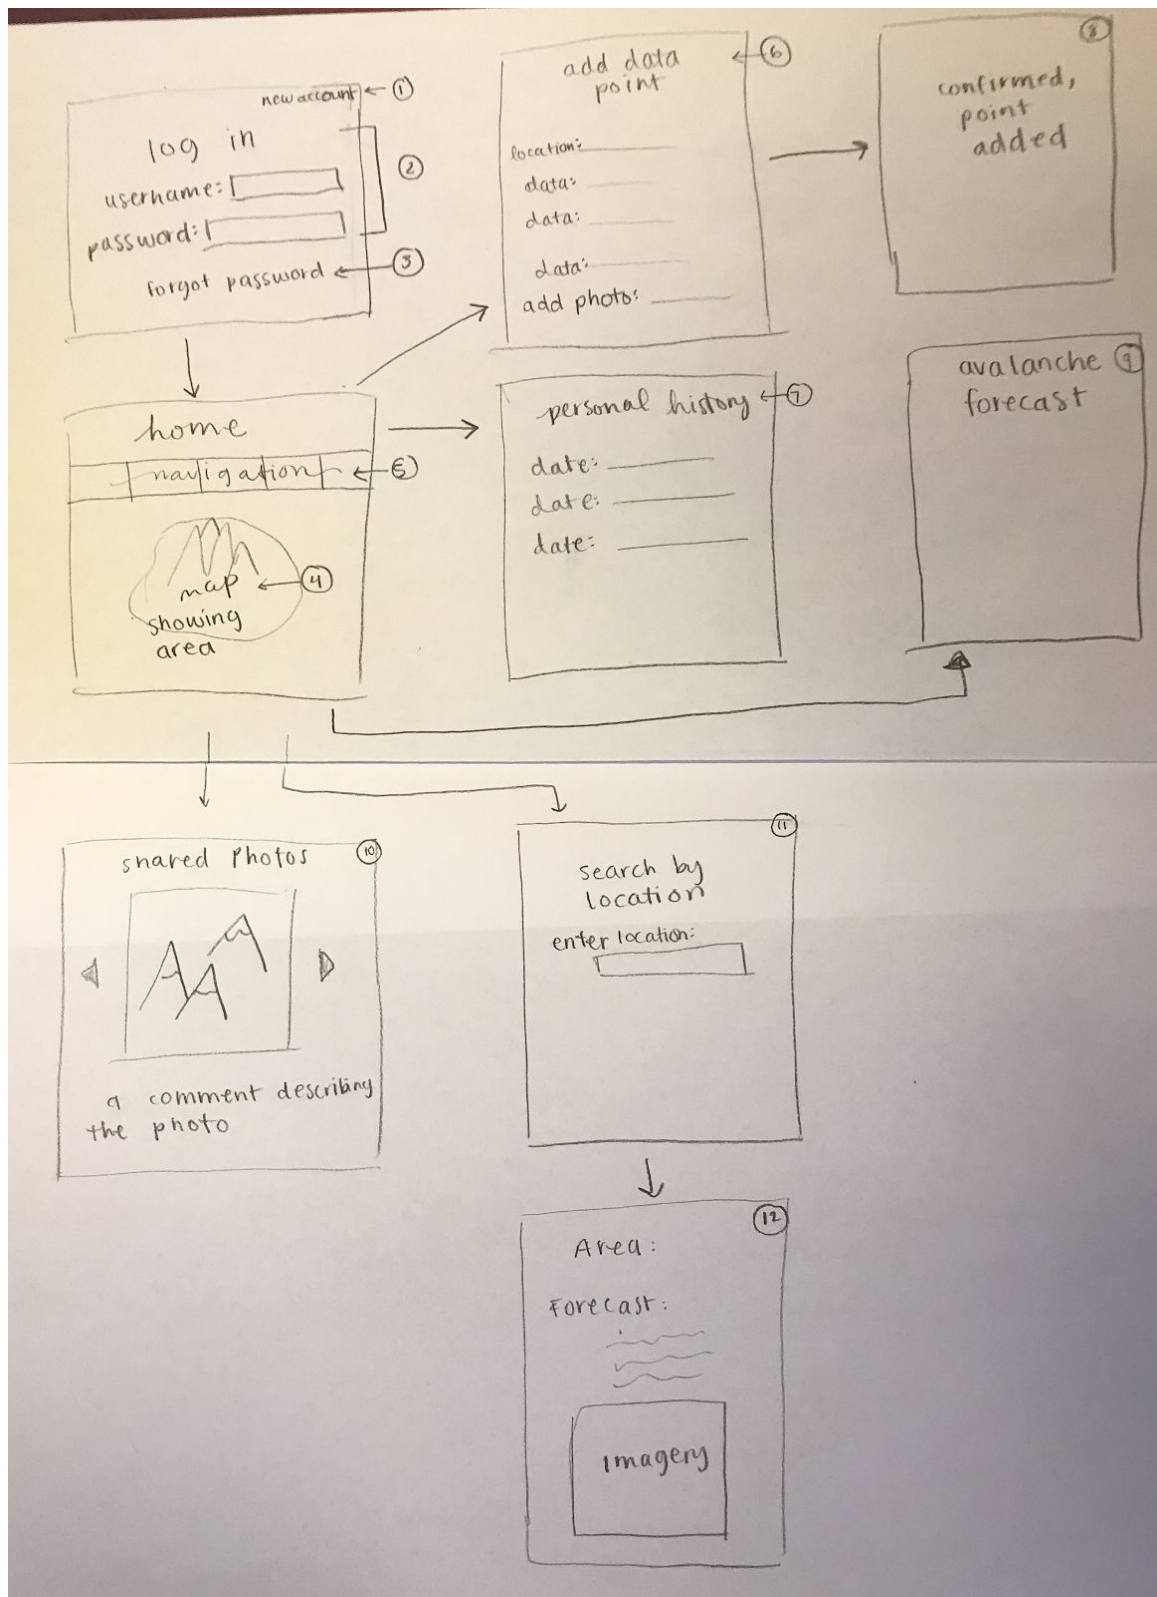 new account ①
log in
username: ②
password:
forgot password ③
home
navigation ⑤
map ④
showing
area
add data ⑥
point
location:
data:
data:
data:
add photo:
⑧
confirmed,
point
added
personal history ⑦
date:
date:
date:
avalanche ⑨
forecast
shared photos ⑩
a comment describing
the photo
⑪
search by
location
enter location:
⑫
Area:
Forecast:
imagery